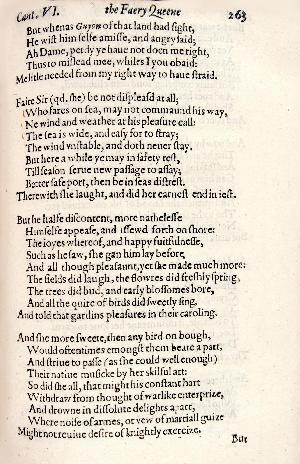 Cant. VI. the Faery Queene 263
But whenas Guyon of that land had sight,
He wist him selfe amisse, and angry said;
Ah Dame, perdy ye haue not doen me right,
Thus to mislead mee, whiles I you obaid:
Me litle needed from my right way to haue straid.
Faire Sir (qd. she) be not displeasd at all;
Who fares on sea, may not commaund his way,
Ne wind and weather at his pleasure call:
The sea is wide, and easy for to stray;
The wind vnstable, and doth neuer stay.
But here a while ye may in safety rest,
Till season serue new passage to assay;
Better safe port, then be in seas distrest.
Therewith she laught, and did her earnest end in iest.
But he halfe discontent, more nathelesse
Himselfe appease, and issewd forth on shore:
The ioyes whereof, and happy fruitfulnesse,
Such as he saw, she gan him lay before,
And all though pleasaunt, yet she made much more:
The fields did laugh, the flowres did freshly spring,
The trees did bud, and early blossomes bore,
And all the quire of birds did sweetly sing,
And told that gardins pleasures in their caroling.
And she more sweete, then any bird on bough,
Would oftentimes emongst them beare a part,
And striue to passe (as she could well enough)
Their natiue musicke by her skilful art:
So did she all, that might his constant hart
Withdraw from thought of warlike enterprize,
And drowne in dissolute delights apart,
Where noise of armes, or vew of martiall guize
Might not reuiue desire of knightly exercize.
But